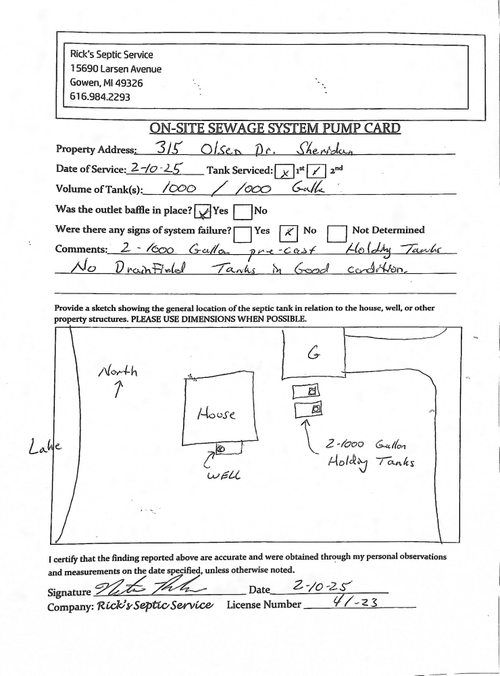 Rick's Septic Service
15690 Larsen Avenue
Gowen, MI 49326
616.984.2293
ON-SITE SEWAGE SYSTEM PUMP CARD
Property Address: 315 Olsen Dr. Sheridan
Date of Service: 2-10-25 Tank Serviced: x 1st / 2nd
Volume of Tank(s): 1000 / 1000 Galls
Was the outlet baffle in place? ✓ Yes No
Were there any signs of system failure? Yes x No Not Determined
Comments: 2 - 1000 Gallon pre-cast Holding Tanks
No DrainField Tanks in Good condition.
Provide a sketch showing the general location of the septic tank in relation to the house, well, or other
property structures. PLEASE USE DIMENSIONS WHEN POSSIBLE.
G
North
House
Lake
WELL
2-1000 Gallon
Holding Tanks
I certify that the finding reported above are accurate and were obtained through my personal observations
and measurements on the date specified, unless otherwise noted.
Signature Date 2-10-25
Company: Rick's Septic Service License Number 41-23